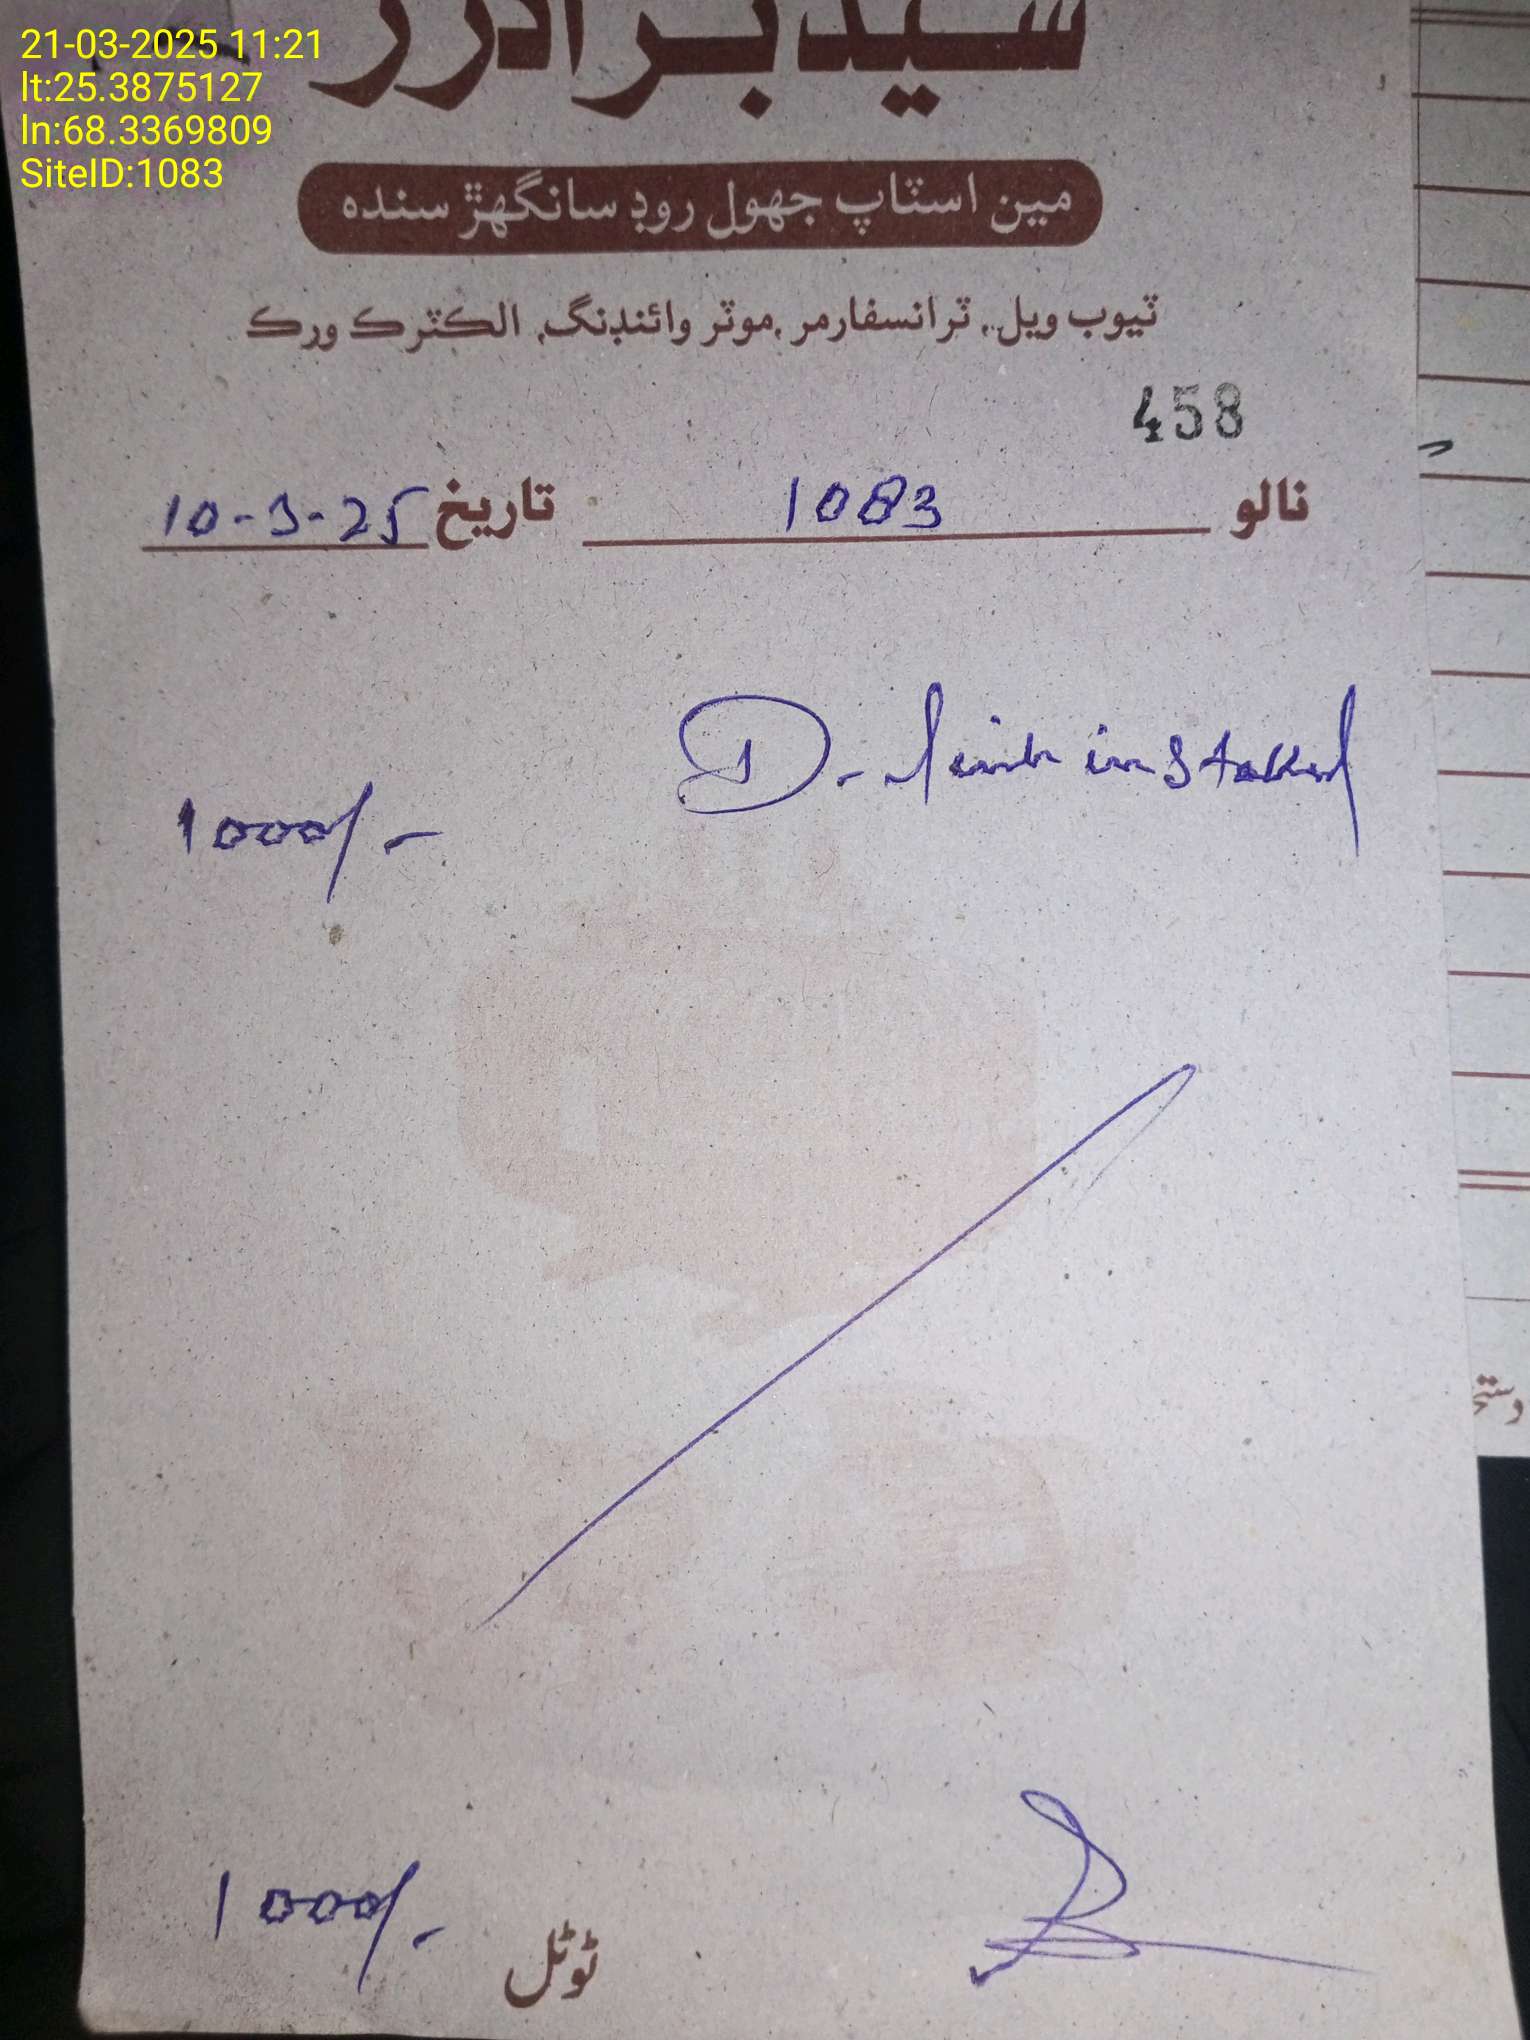 21-03-2025 11:21
lt:25.3875127
ln:68.3369809
SiteID:1083
سيد برادرز
مين اسٽاپ جھول روڊ سانگھڙ سنده
ٽيوب ويل، ٽرانسفارمر، موٽر وائنڊنگ، الڪٽرڪ ورڪ
458
نالو 1083 تاريخ 10-3-25
D-link installed
1000/-
ٹوٹل 1000/-